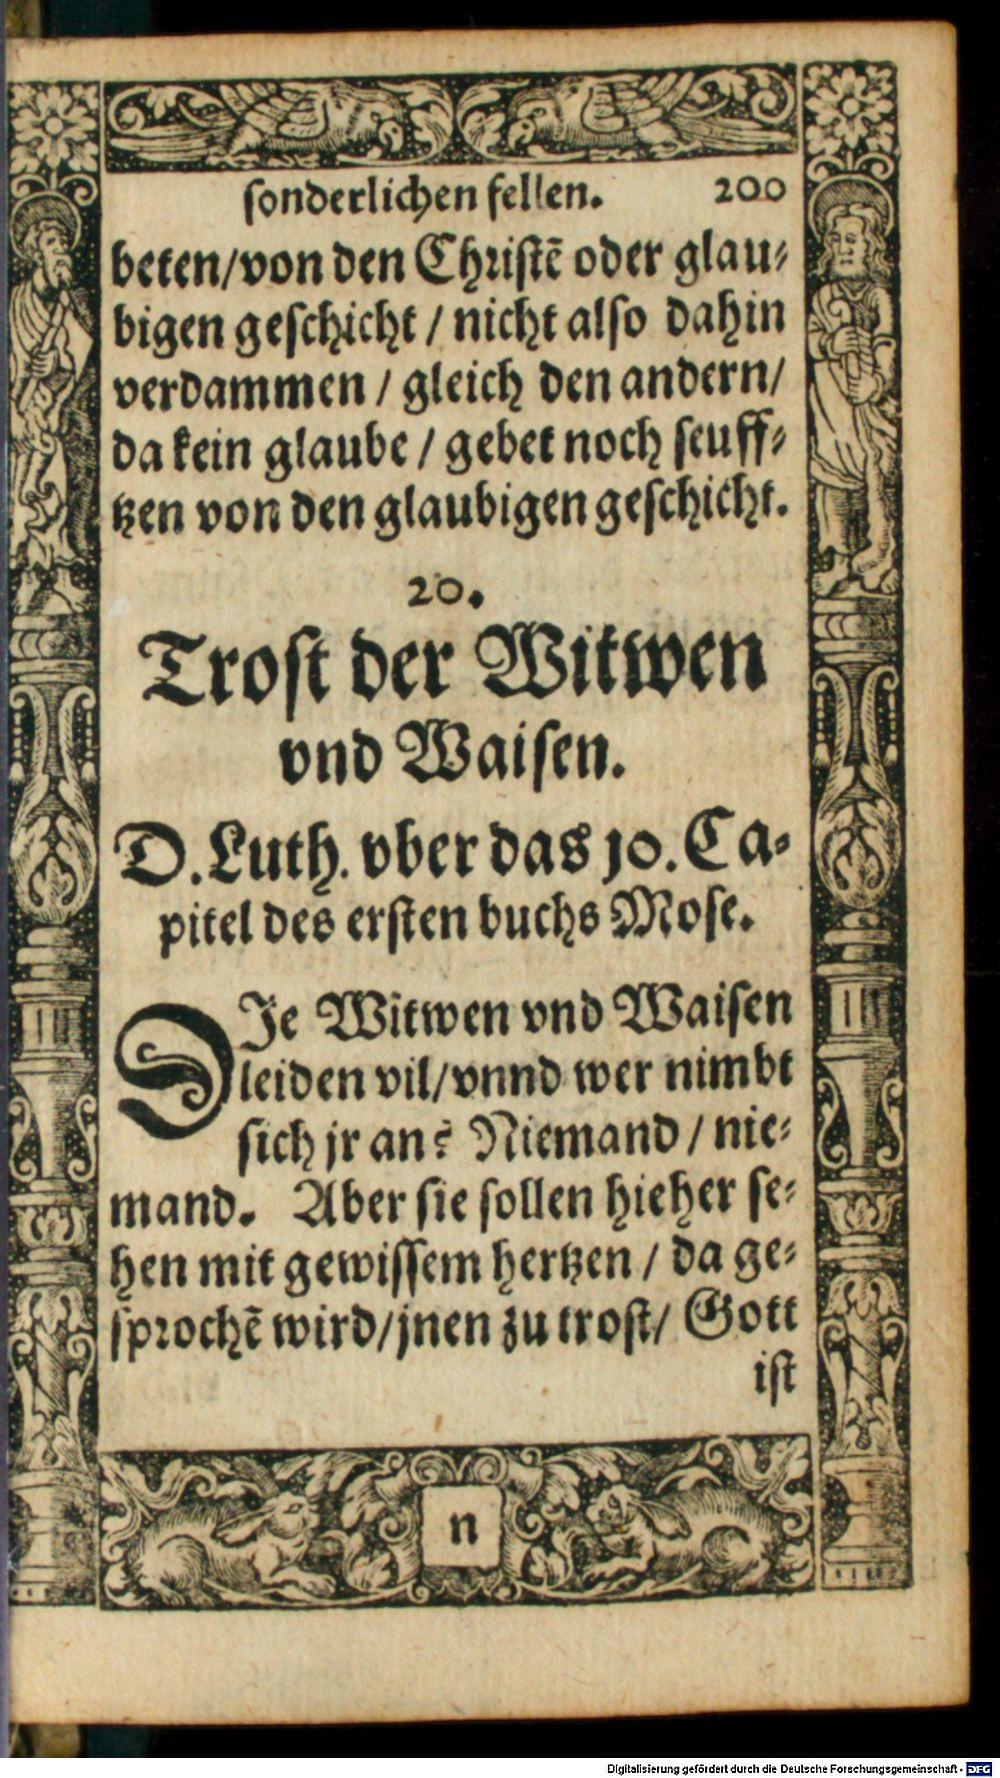 sonderlichen fellen. 200
beten/von den Christē oder glau⸗
bigen geschicht / nicht also dahin
verdammen / gleich den andern/
da kein glaube / gebet noch seuff⸗
tzen von den glaubigen geschicht.
20.
Trost der Witwen
vnd Waisen.
D. Luth. vber das 10. Ca⸗
pitel des ersten buchs Mose.
DIe Witwen vnd Waisen
leiden vil/vnnd wer nimbt
sich jr an? Niemand / nie⸗
mand. Aber sie sollen hieher se⸗
hen mit gewissem hertzen / da ge⸗
sprochē wird/jnen zu trost/ Gott
ist
n
Digitalisierung gefördert durch die Deutsche Forschungsgemeinschaft - DFG